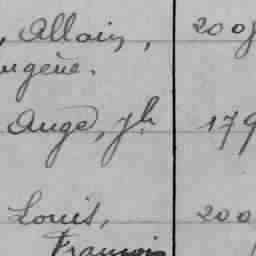 , Allain, 2008
ugène.
Ange, Jh 179
Louis, 200
François